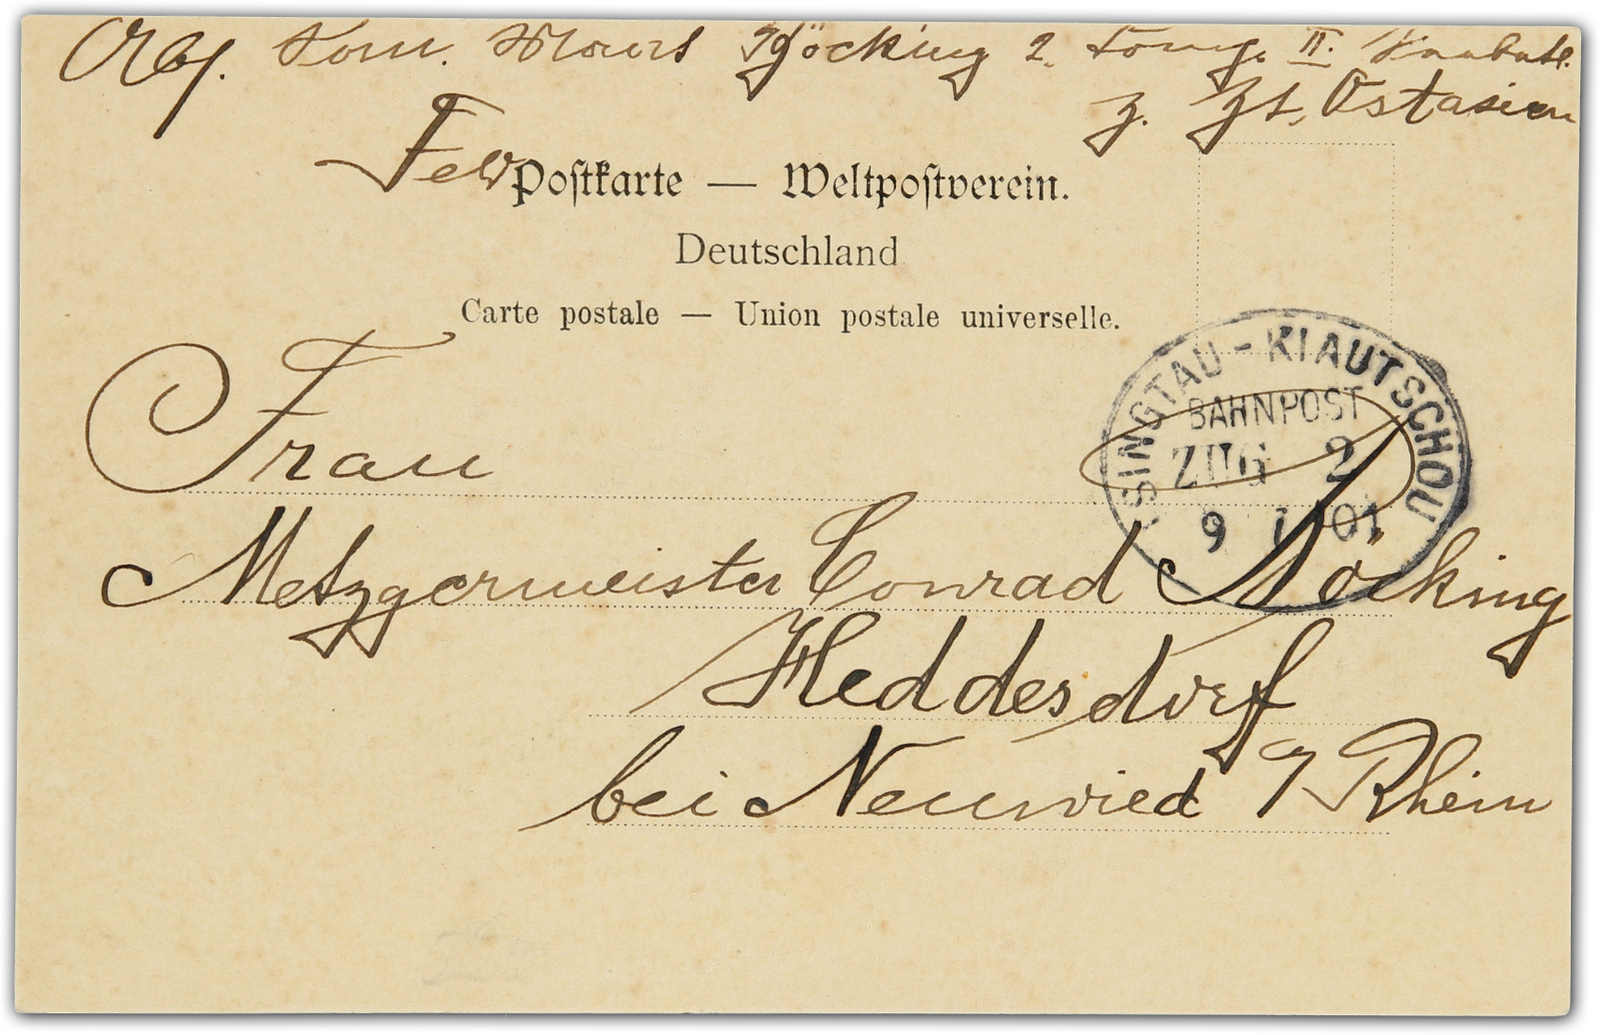 Abs. Göcking 2. Komp. II.
z. Zt. Ostasien
Feld Postkarte — Weltpostverein.
Deutschland
Carte postale — Union postale universelle.
TSINGTAU - KIAUTSCHOU
BAHNPOST
Frau
ZUG 2
9 1 01
Metzgermeister Conrad Göcking
Heddesdorf
bei Neuwied / Rhein